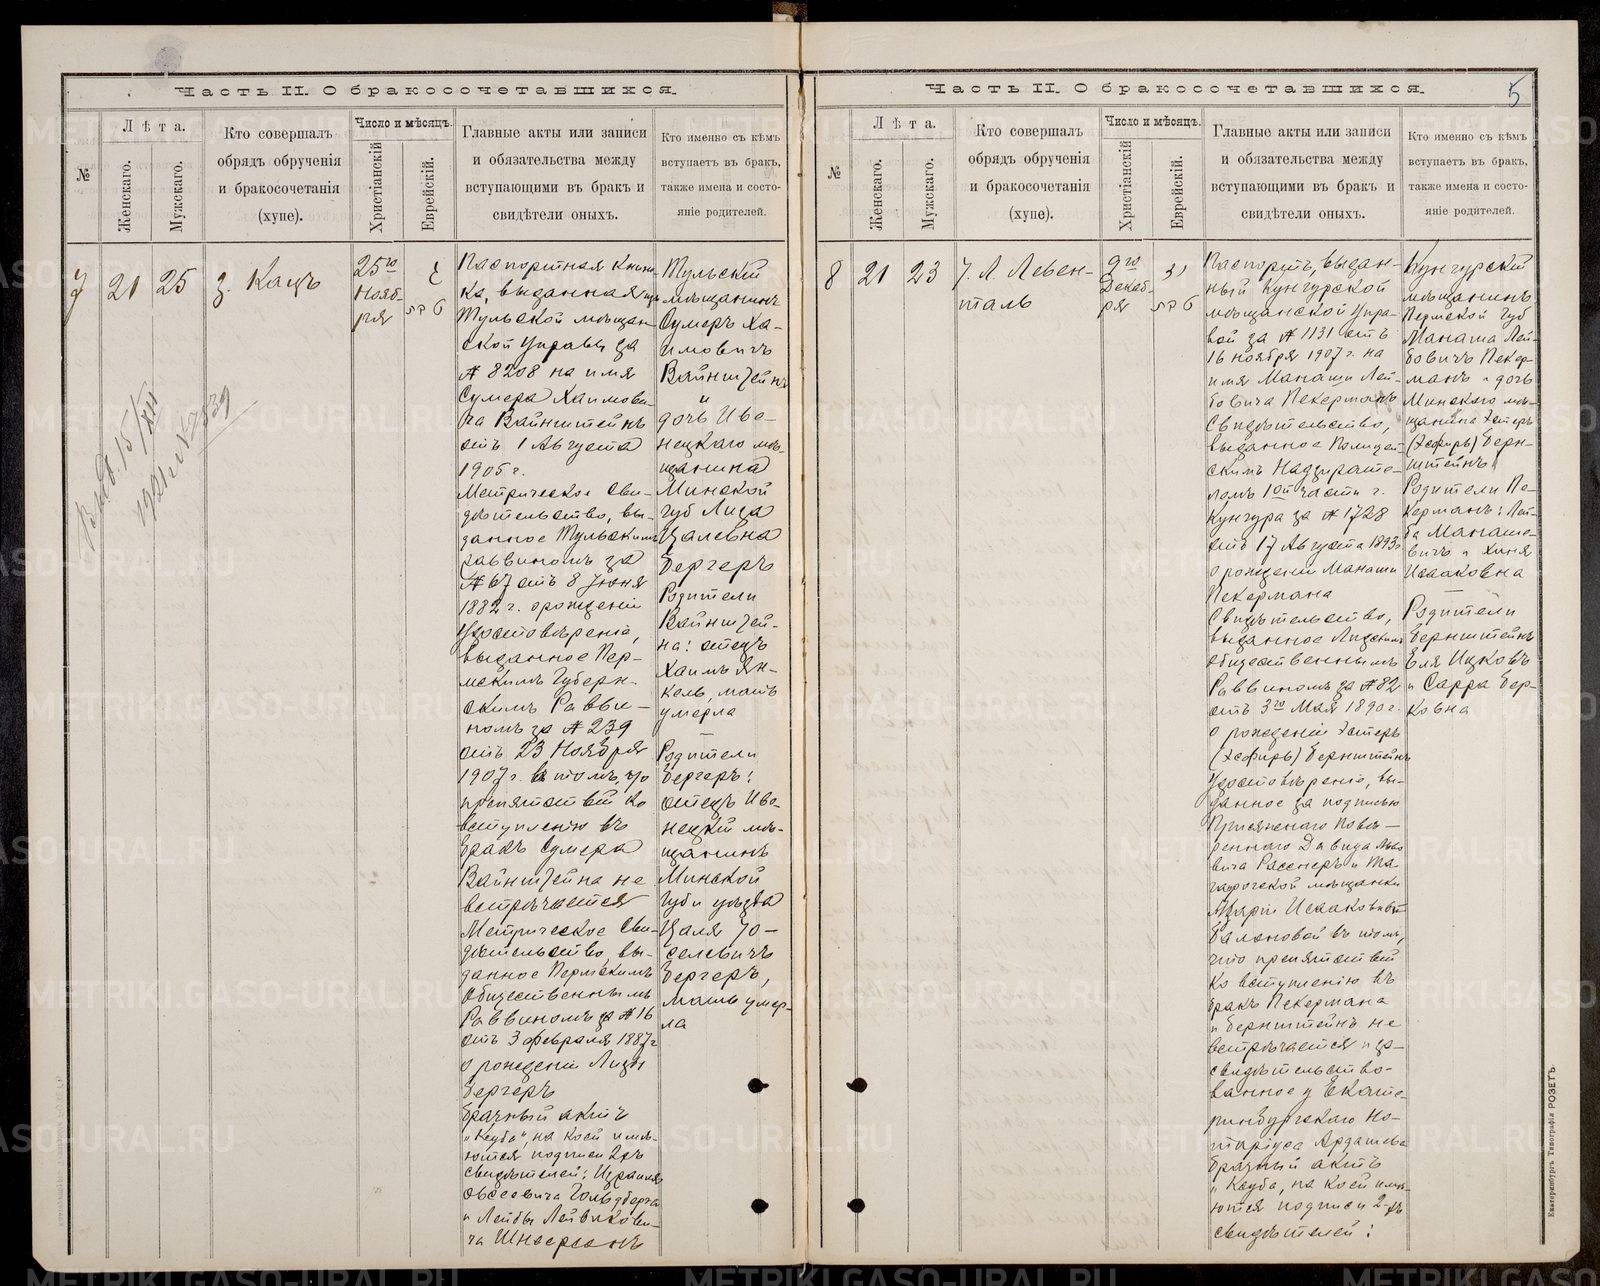 Часть II. О бракосочетавшихся.
№
Лѣта.
Женскаго.
Мужскаго.
Кто совершалъ
обрядъ обрученія
и бракосочетанія
(хупе).
Число и мѣсяцъ.
Христіанскій
Еврейскій.
Главные акты или записи
и обязательства между
вступающими въ бракъ и
свидѣтели оныхъ.
Кто именно съ кѣмъ
вступаетъ въ бракъ,
также имена и состо-
яніе родителей.
7
21
25
З. Кацъ
25го
Нояб-
ря
Паспортная книж-
ка, выданная изъ
Тульской мѣщан-
ской Управы за
№ 8208 на имя
Сумера Хаимови-
ча Вайнштейнъ
отъ 1 Августа
1905 г.
Метрическое Сви-
дѣтельство, вы-
данное Тульскимъ
раввиномъ за
№ 67 отъ 8 Июня
1882 г. о рожденіи
Удостовѣреніе,
выданное Пер-
мскимъ Губерн-
скимъ Равви-
номъ за № 239
отъ 23 Ноября
1907 г. въ томъ, что
препятствій ко
вступленію въ
бракъ Сумера
Вайнштейна не
встрѣчается
Метрическое Сви-
дѣтельство, вы-
данное Пермскимъ
Общественнымъ
Раввиномъ за № 16
отъ 3 февраля 1887 г
о рожденіи Лизы
Бергеръ
Брачный актъ
„Ксуба", на коей имѣ-
ются подписи 2хъ
свидѣтелей: Израиля
Овсеевича Гольдберга
и Лейбы Лейвикови-
ча Шнеерсонъ
Тульскій
мѣщанинъ
Сумеръ Ха-
имовичъ
Вайнштейнъ
и
дочь Иве-
нецкаго мѣ-
щанина
Минской
губ Лиза
Цалевна
Бергеръ
Родители
Вайнштей-
на: отецъ
Хаимъ Ян-
кель, мать
умерла
Родители
Бергеръ:
отецъ Иве-
нецкій мѣ-
щанинъ
Минской
губ и уѣзда
Цаля Йо-
селевичъ
Бергеръ,
мать умер-
ла
Часть II. О бракосочетавшихся.
5
№
Лѣта.
Женскаго.
Мужскаго.
Кто совершалъ
обрядъ обрученія
и бракосочетанія
(хупе).
Число и мѣсяцъ.
Христіанскій
Еврейскій.
Главные акты или записи
и обязательства между
вступающими въ бракъ и
свидѣтели оныхъ.
Кто именно съ кѣмъ
вступаетъ въ бракъ,
также имена и состо-
яніе родителей.
8
21
23
Л. Левен-
таль
9го
Декаб-
ря
Паспортъ, выдан-
ный Кунгурской
мѣщанской Упра-
вой за № 1131 отъ
16 ноября 1907 г. на
имя Манаши Лей-
бовича Пекерманъ
Свидѣтельство,
выданное Полицей-
скимъ Надзирате-
лемъ 1ой части г.
Кунгура за № 1728
отъ 17 Августа 1893
о рожденіи Манаши
Пекермана
Свидѣтельство,
выданное Лидскимъ
Общественнымъ
Раввиномъ за № 82
отъ 3го Мая 1890 г.
о рожденіи Эстеръ
(Эсфирь) Бернштейнъ
Удостовѣреніе, вы-
данное за подписью
Присяжнаго Повѣ-
реннаго Давида Льво
вича Расснеръ и Та-
гарогской мѣщанки
Маріи Исааковной
Балановой въ томъ,
что препятствій
ко вступленію въ
бракъ Пекермана
и Бернштейнъ не
встрѣчается и за-
свидѣтельство-
ванное у Екате-
ринбургскаго но-
таріуса Ардашева
Брачный актъ
„Ксуба, на коей имѣ-
ются подписи 2-хъ
свидѣтелей:
Кунгурскій
мѣщанинъ
Пермской губ
Манаша Лей-
бовичъ Пекер-
манъ и дочь
Минскаго мѣ-
щанина Эстеръ
(Эсфирь) Берн-
штейнъ
Родители Пе-
керманъ: Лей-
ба Манаше-
вичъ и Хиня
Исааковна
Родители
Бернштейнъ
Еля Ицковъ
и Сарра Бер-
ковна
Екатеринбургъ Типографія РОЗЕТЪ
METRIKI.GASO-URAL.RU